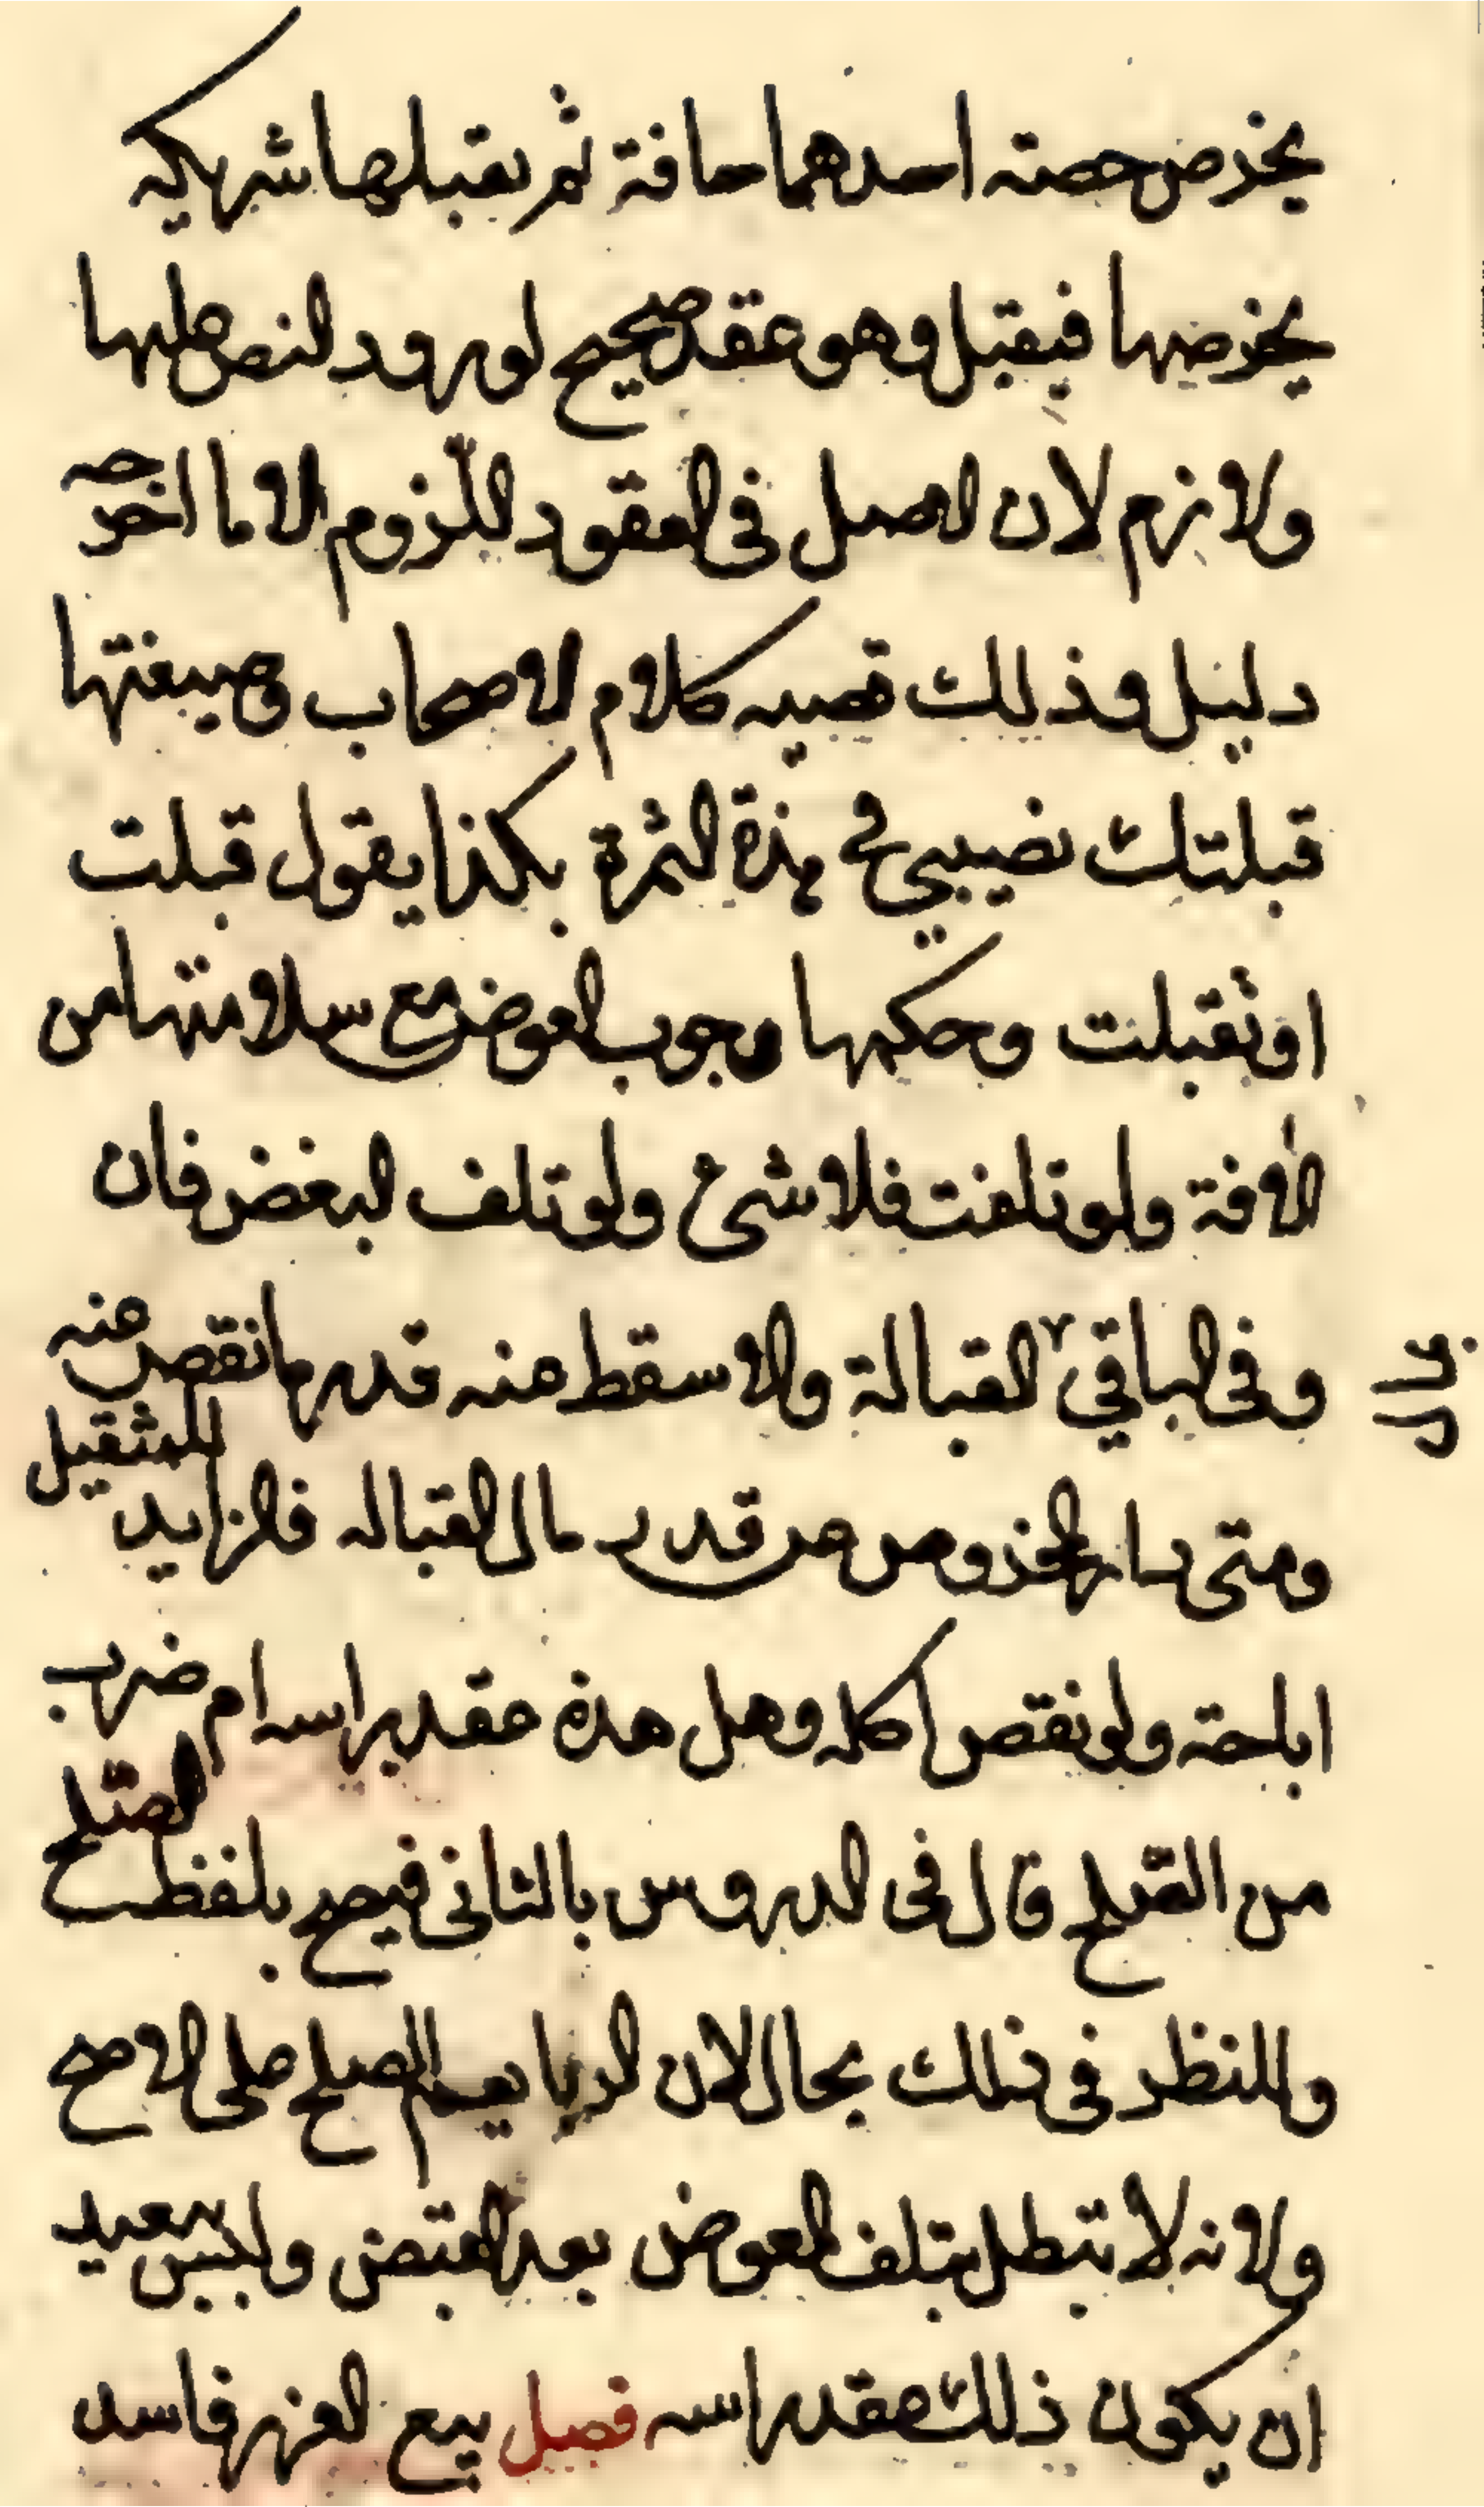 يخرص حصته احدهما حافة ثم يقبلها شريكه
بخرصها فيقبل وهو عقد صحيح لورود النص عليها
ولازم لان الاصل فى العقود اللزوم الا ما اخرجه
دليل وذلك قضيه كلام الاصحاب وصيغتها
قبلتك نصيبي في هذة الثمرة بكذا يقول قبلت
او تقبلت وحكمها وجوب العوض مع سلامتها من
الافة ولو تلفت فلا شئ ولو تلف البعض فان
وفى الباقي القبالة والا سقط عنه قدر ما نقص عنه
ومتى المخروص عن قدر مال القبالة فالزايد للمتقبل
اباحة ولو نقص اكله وهل هذة عقد براسه ام ضرب
من الصّلح قال فى الدروس بالثانى فيصح بلفظ الصّلح
وللنظر فى ذلك بحال لان الربا يعم الصلح على الاصح
ولانه لا تبطل بتلف العوض بعد القبض وليس ببعيد
ان يكون ذلك عقد براسه فصل بيع الغرر فاسد